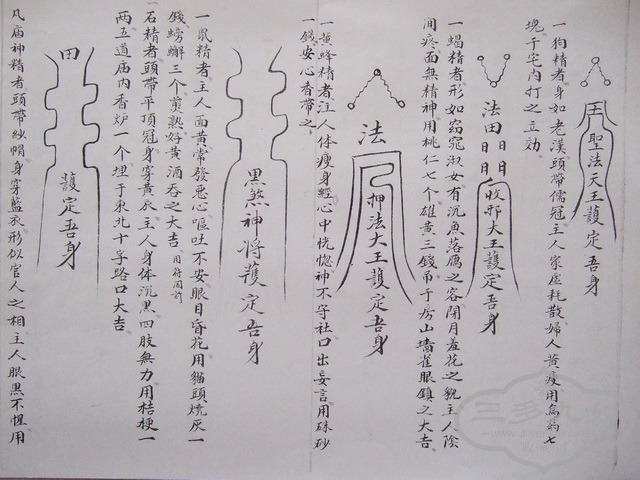 聖法天王護定吾身
一狗精者身如老漢頭帶儒冠主人家虛耗散婦人黃瘦用烏葯七
塊于宅內打之立効
法田日日日日收邪大王護定吾身
一蝎精者形如窈窕淑女有沉魚落雁之容閉月羞花之貌主人陰
间疼面無精神用桃仁七个雄黃三錢吊于房山墻雀眼鎮之大吉
法押法大王護定吾身
一黃蜂精者注人体瘦身經心中恍惚神不守社口出妄言用硃砂
一錢安心香帶之
黑煞神将護定吾身
一鼠精者主人面黃常發悪心嘔吐不安眼目昏花用貓頭燒灰一
錢螃蠏三个煎熟好黃酒吞之大吉用符同前
石精者頭帶平頂冠身穿黃衣主人身体沉黑四肢無力用桔梗一
两五道庙内香炉一个埋于東北十字路口大吉
田護定吾身
凡庙神精者頭帶紗帽身穿藍衣形似官人之相主人眼黑不惺用
三多